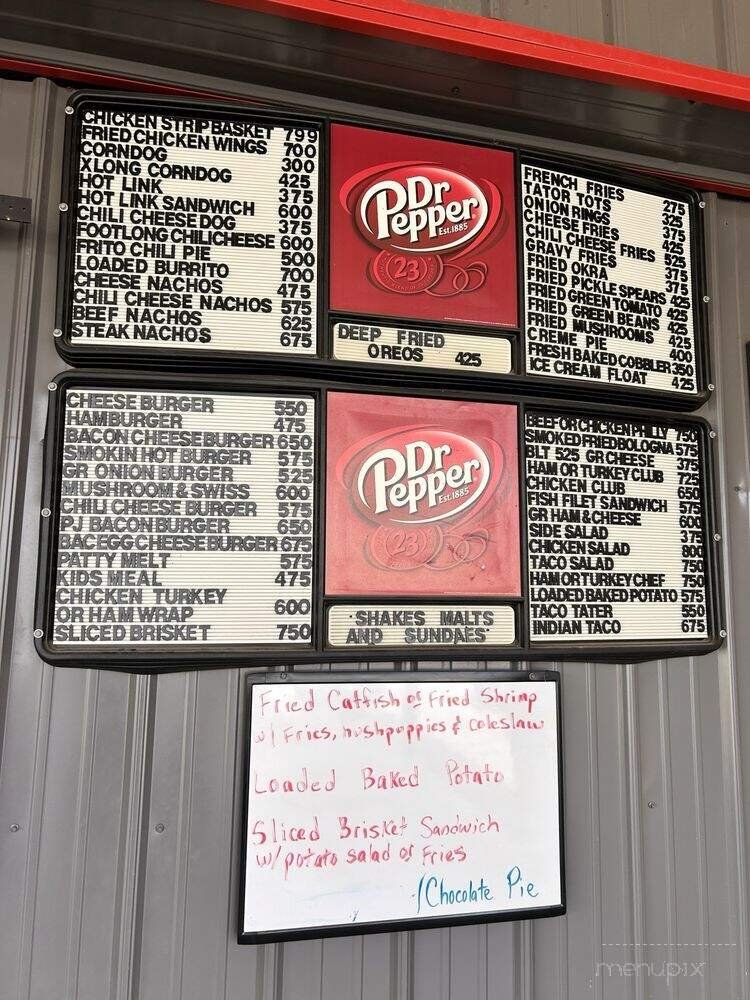 CHICKEN STRIP BASKET 799
FRIED CHICKEN WINGS 700
CORNDOG 300
XLONG CORNDOG 425
HOT LINK 375
HOT LINK SANDWICH 600
CHILI CHEESE DOG 375
FOOTLONG CHILICHEESE 600
FRITO CHILI PIE 500
LOADED BURRITO 700
CHEESE NACHOS 475
CHILI CHEESE NACHOS 575
BEEF NACHOS 625
STEAK NACHOS 675
Dr Pepper
Est.1885
23
DEEP FRIED
OREOS 425
FRENCH FRIES 275
TATOR TOTS 325
ONION RINGS 375
CHEESE FRIES 425
CHILI CHEESE FRIES 525
GRAVY FRIES 375
FRIED OKRA 375
FRIED PICKLE SPEARS 425
FRIED GREEN TOMATO 425
FRIED GREEN BEANS 425
FRIED MUSHROOMS 425
CREME PIE 400
FRESH BAKED COBBLER 350
ICE CREAM FLOAT 425
CHEESE BURGER 550
HAMBURGER 475
BACON CHEESE BURGER 650
SMOKIN HOT BURGER 575
GR ONION BURGER 525
MUSHROOM & SWISS 600
CHILI CHEESE BURGER 575
PJ BACON BURGER 650
BACEGG CHEESE BURGER 675
PATTY MELT 575
KIDS MEAL 475
CHICKEN TURKEY
OR HAM WRAP 600
SLICED BRISKET 750
Dr Pepper
Est.1885
23
SHAKES MALTS
AND SUNDAES
BEEF OR CHICKEN PHILLY 750
SMOKED FRIED BOLOGNA 575
BLT 525 GR CHEESE 375
HAM OR TURKEY CLUB 725
CHICKEN CLUB 650
FISH FILET SANDWICH 575
GR HAM & CHEESE 600
SIDE SALAD 375
CHICKEN SALAD 800
TACO SALAD 750
HAM OR TURKEY CHEF 750
LOADED BAKED POTATO 575
TACO TATER 550
INDIAN TACO 675
Fried Catfish or Fried Shrimp
w/ Fries, hushpuppies & coleslaw
Loaded Baked Potato
Sliced Brisket Sandwich
w/potato salad or Fries
/Chocolate Pie
menupix